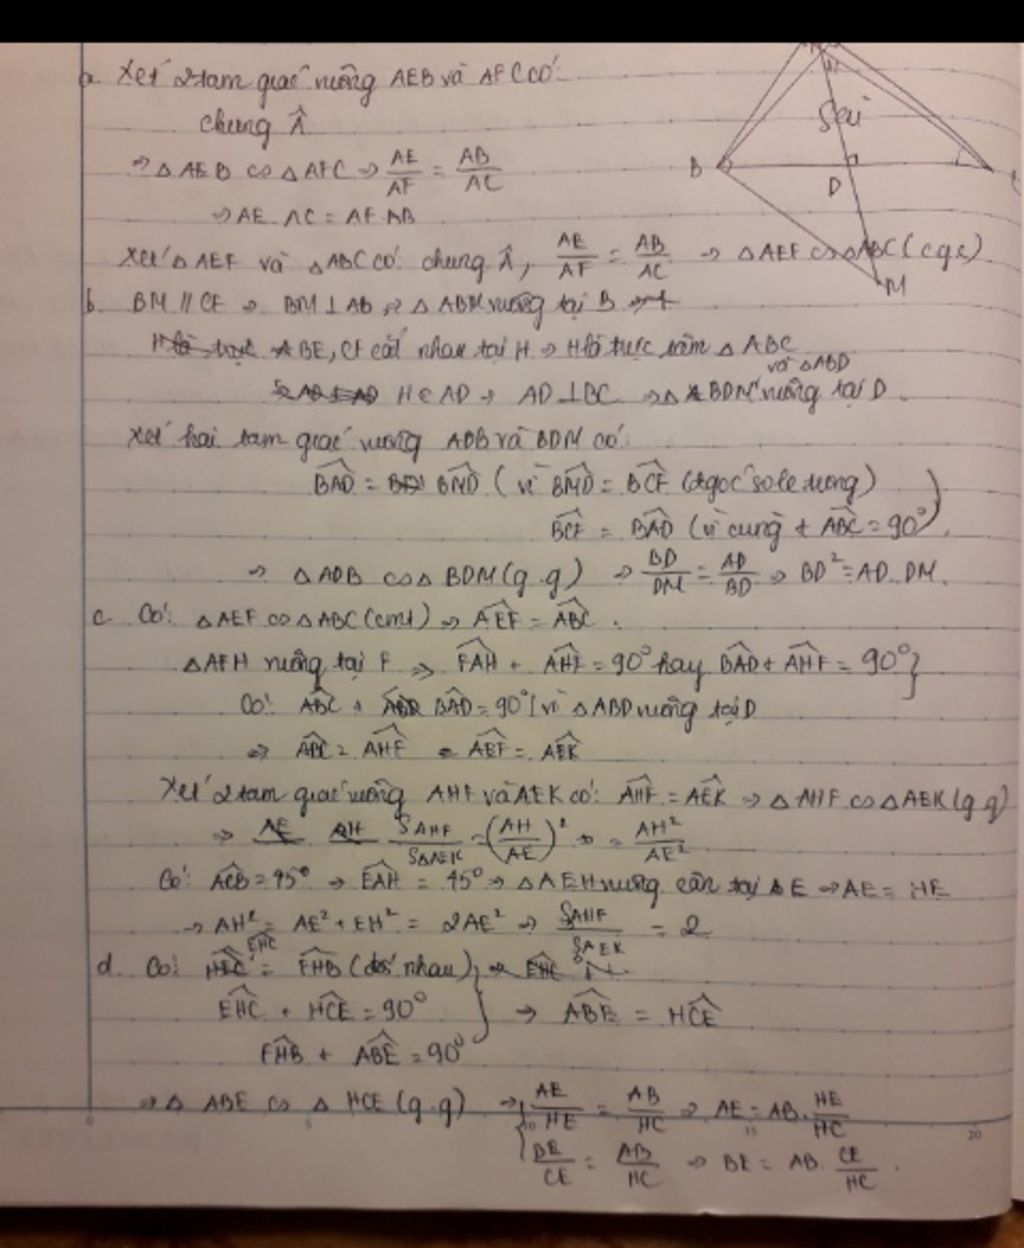 a. Xét 2 tam giác vuông AEB và AFC có:
chung Â
⇒ △AEB ∽ △AFC ⇒ AE/AF = AB/AC
⇒ AE. AC = AF. AB
Xét △AEF và △ABC có: chung Â, AE/AF = AB/AC ⇒ △AEF ∽ △ABC (c.g.c)
b. BM // CF ⇒ BM ⊥ AB ⇒ △ABM vuông tại B
BE, CF cắt nhau tại H ⇒ H là trực tâm △ABC
và △ABD
H ∈ AD ⇒ AD ⊥ BC ⇒ △ BDM vuông tại D.
Xét hai tam giác vuông ADB và BDM có:
BAD^ = BMD^ (vì BMD^ = BCF^ (2 góc so le trong)
BCF^ = BAD^ (vì cùng + ABC^ = 90°)
⇒ △ADB ∽ △BDM (g.g) ⇒ BD/DM = AD/BD ⇒ BD² = AD. DM.
c. Có: △AEF ∽ △ABC (cmt) ⇒ AEF^ = ABC^.
△AFH vuông tại F ⇒ FAH^ + AHF^ = 90° hay BAD^ + AHF^ = 90°}
Có: ABC^ + BAD^ = 90° (vì △ABD vuông tại D
⇒ ABC^ = AHF^ = AEF^ = AEK^
Xét 2 tam giác vuông AHF và AEK có: AHF^ = AEK^ ⇒ △AHF ∽ △AEK (g.g)
⇒ S AHF/S△AEK = (AH/AE)² = AH²/AE²
Có: ACB^ = 45° ⇒ EAH^ = 45° ⇒ △AEH vuông cân tại E ⇒ AE = HE
⇒ AH² = AE² + EH² = 2AE² ⇒ S AHF/S AEK = 2
d. Có: EHC^ = FHB^ (đối nhau)
EHC^ + HCE^ = 90° } ⇒ ABE^ = HCE^
FHB^ + ABE^ = 90°
⇒ △ ABE ∽ △ HCE (g.g) ⇒ { AE/HE = AB/HC ⇒ AE = AB. HE/HC
BE/CE = AB/HC ⇒ BE = AB. CE/HC.
Sai
B
D
M
0 5 10 15 20